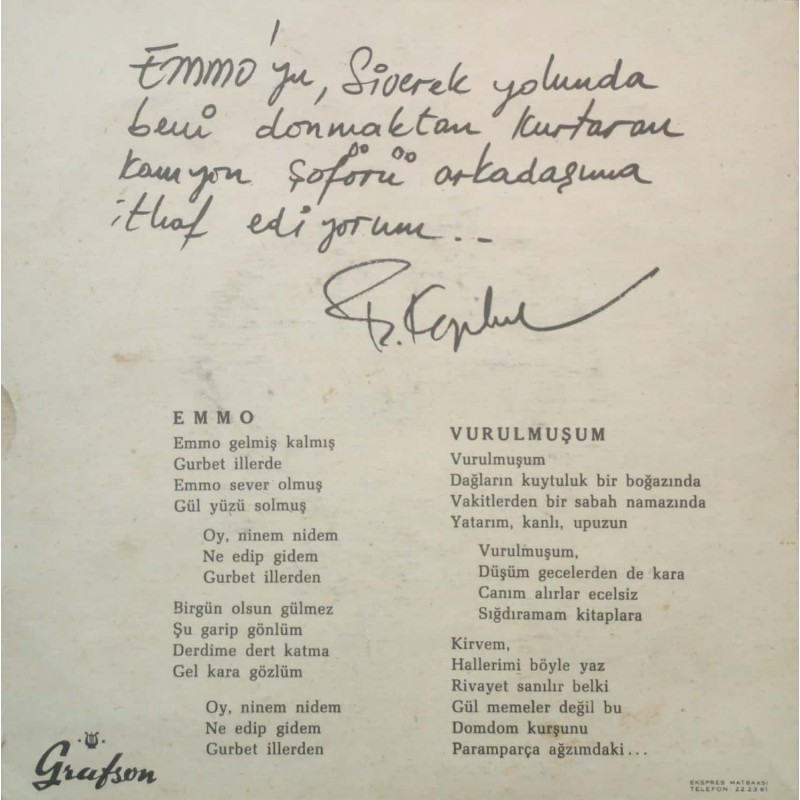 EMMO'yu, Siverek yolunda
beni donmaktan kurtaran
kamyon şoförü arkadaşıma
ithaf ediyorum..
EMMO
Emmo gelmiş kalmış
Gurbet illerde
Emmo sever olmuş
Gül yüzü solmuş
Oy, ninem nidem
Ne edip gidem
Gurbet illerden
Birgün olsun gülmez
Şu garip gönlüm
Derdime dert katma
Gel kara gözlüm
Oy, ninem nidem
Ne edip gidem
Gurbet illerden
VURULMUŞUM
Vurulmuşum
Dağların kuytuluk bir boğazında
Vakitlerden bir sabah namazında
Yatarım, kanlı, upuzun
Vurulmuşum,
Düşüm gecelerden de kara
Canım alırlar ecelsiz
Sığdıramam kitaplara
Kirvem,
Hallerimi böyle yaz
Rivayet sanılır belki
Gül memeler değil bu
Domdom kurşunu
Paramparça ağzımdaki...
Grafson
EKSPRES MATBAASI
TELEFON: 22 23 61